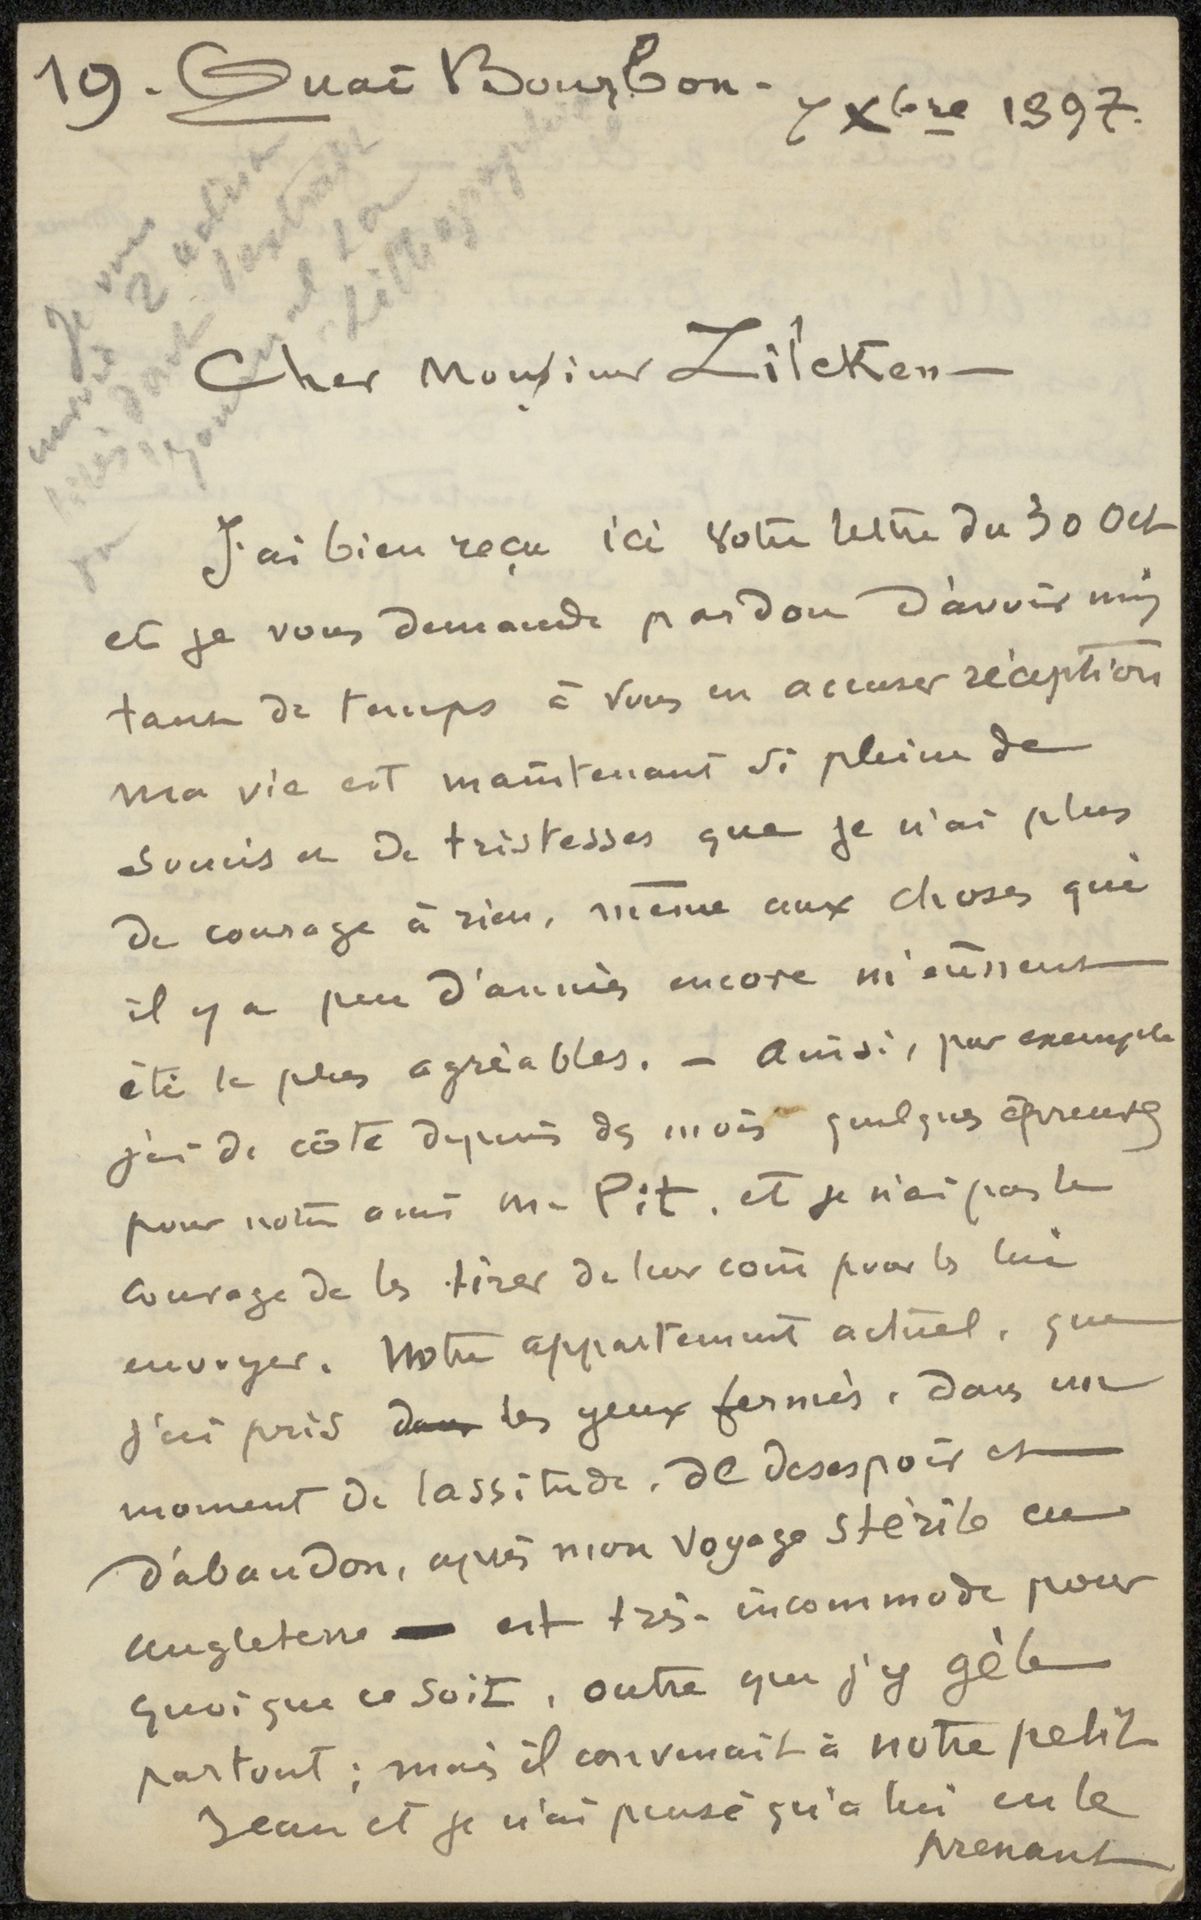 19. Quai Bourbon. 7 Xbre 1897.
Je vous
2 artistes
dont
Lithographies
Cher Monsieur Zilcken —
J'ai bien reçu ici votre lettre du 30 Oct
et je vous demande pardon d'avoir mis
tant de temps à vous en accuser réception
ma vie est maintenant si pleine de
soucis et de tristesses que je n'ai plus
de courage à rien, même aux choses qui
il y a peu d'années encore m'eussent
été le plus agréables. — Ainsi, par exemple
j'ai de côté depuis des mois quelques épreuves
pour notre ami M. Pit, et je n'ai pas le
courage de les tirer de leur coin pour les lui
envoyer. Notre appartement actuel, que
j'ai pris dans les yeux fermés, dans un
moment de lassitude, de desespoir et
d'abandon, après mon voyage stérile en
angleterre — est très-incommode pour
quoique ce soit, outre que j'y gèle
partout ; mais il convenait à notre petit
Jean et je n'ai pensé qu'à lui en le
prenant